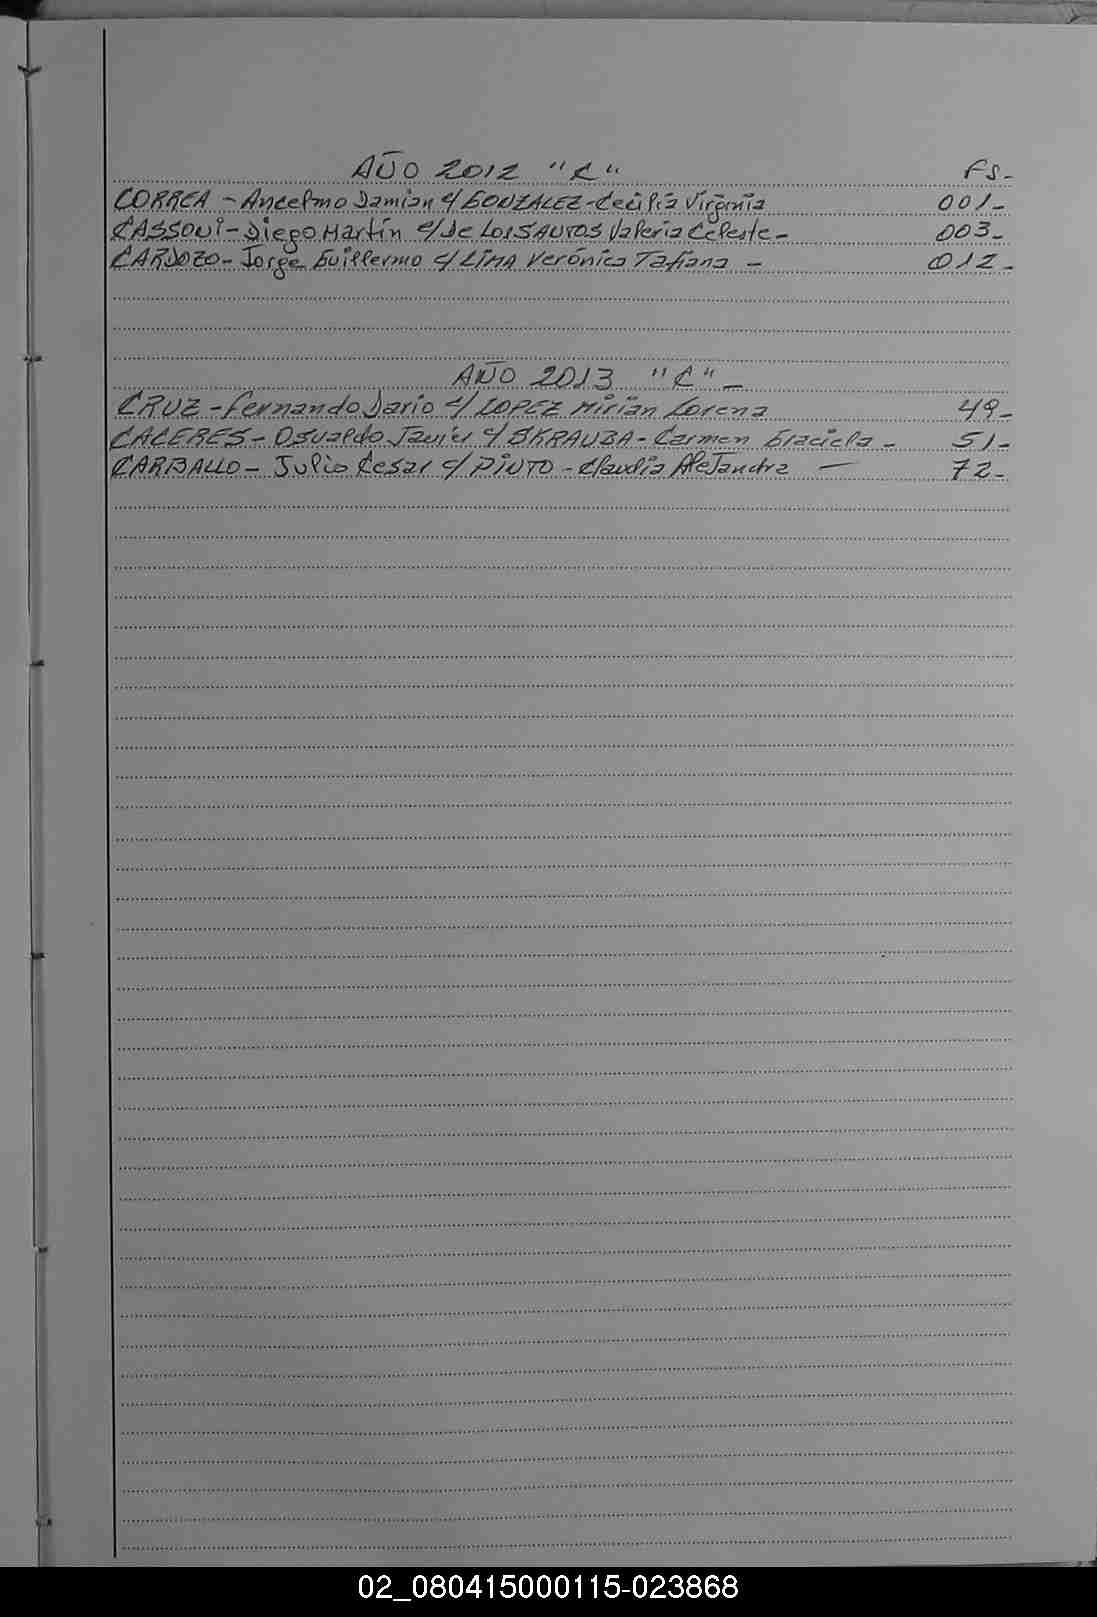 AÑO 2012 "C" FS-
CORREA - Ancelmo Damian c/ GONZALEZ - Cecilia Virginia 001-
CASSONI - Diego Martín c/ De LOS SANTOS Valeria Celeste - 003-
CARDOZO - Jorge Guillermo c/ LIMA Verónica Tatiana - 012-
AÑO 2013 "C" -
CRUZ - Fernando Dario c/ LOPEZ Mirian Lorena 49-
CACERES - Osvaldo Javier c/ SKRAUBA - Carmen Graciela - 51-
CARBALLO - Julio Cesar c/ PINTO - Claudia Alejandra - 72-
02_080415000115-023868